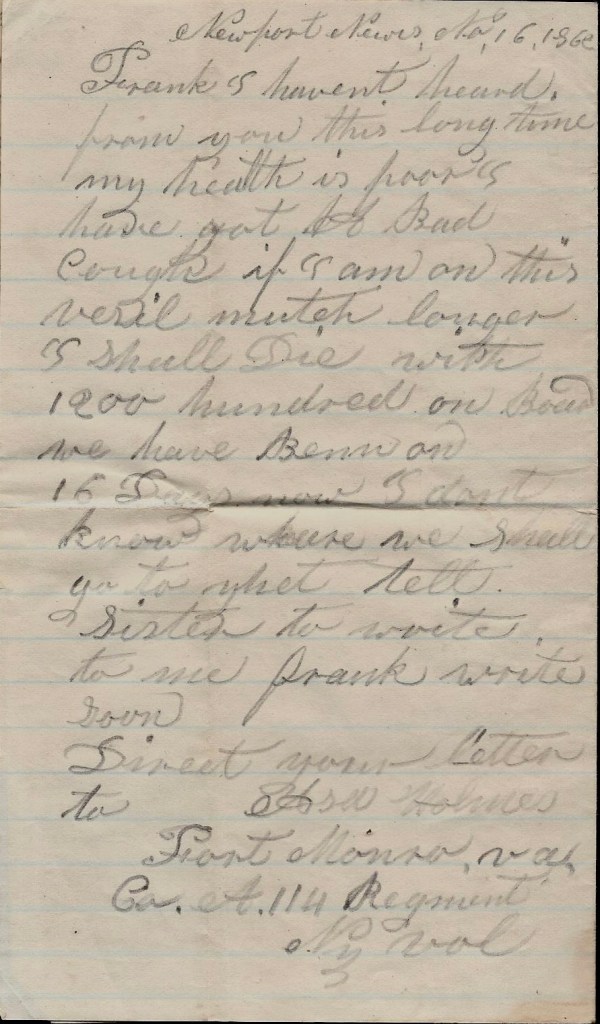 Newport News, No, 16, 1862
Frank I havent heard.
from you this long time
my health is poor I
have got A Bad
Cough if I am on this
vesil mutch longer
I shall Die with
1200 hundred on Board
we have Benn on
16 Days now I dont
know wheare we shall
go to yhet tell.
Sister to write.
to me frank write
soon
Direct your letter
to Asa Holmes
Fort Monro, va,
Co. A. 114 Regment
Ny vol